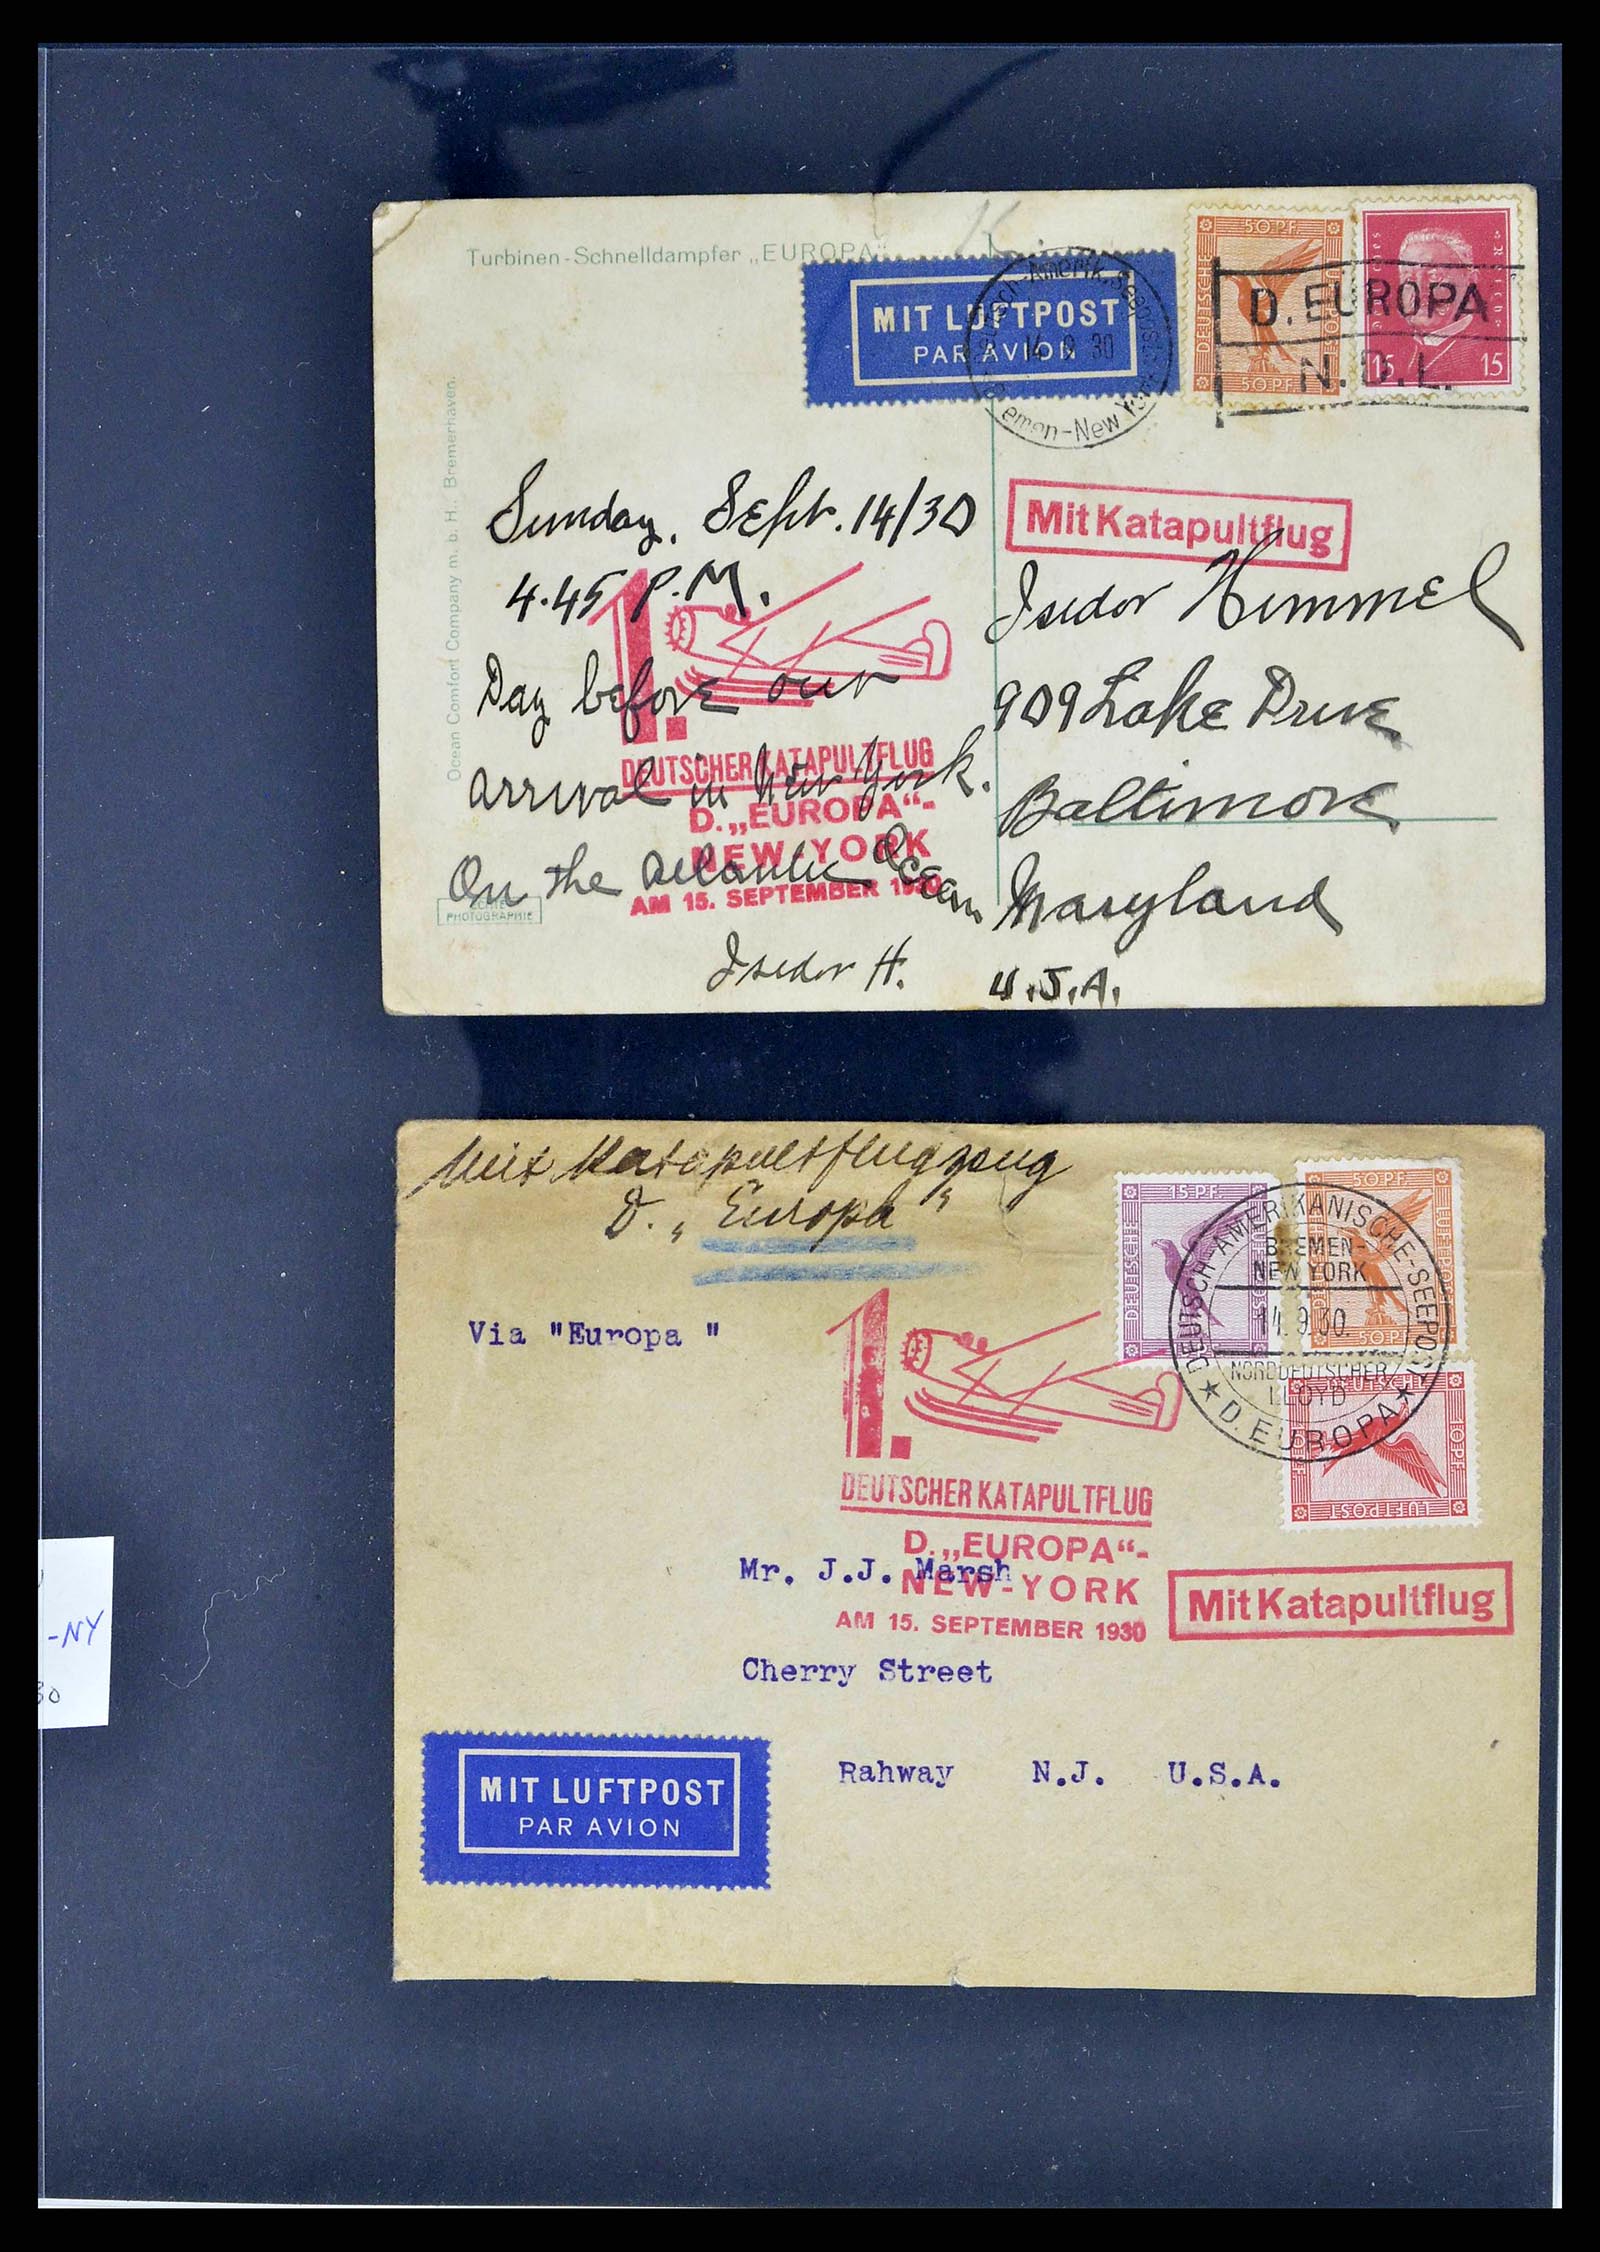 Turbinen-Schnelldampfer „EUROPA"
MIT LUFTPOST
PAR AVION
14 9 30
Bremen-New York
50 PF
DEUTSCHE
50 PF
15 15
D. EUROPA
N.D.L.
Ocean Comfort Company m. b. H., Bremerhaven.
Sunday, Sept. 14/30
4.45 P.M.
Day before our
arrival in New York.
On the Atlantic Ocean
Isidor H.
ECHTE
PHOTOGRAPHIE
1.
DEUTSCHER KATAPULTFLUG
D. „EUROPA"-
NEW-YORK
AM 15. SEPTEMBER 1930
Mit Katapultflug
Isidor Himmel
909 Lake Drive
Baltimore
Maryland
U.S.A.
Mit Katapultflugzeug
D. „Europa"
Via "Europa "
15 PF
DEUTSCHE
50 PF
50 PF
10 PF
LUFTPOST
DEUTSCH-AMERIKANISCHE-SEEPOST
BREMEN-
NEW YORK
14.9.30
NORDDEUTSCHER
LLOYD
★ D. EUROPA ★
1.
DEUTSCHER KATAPULTFLUG
D. „EUROPA"-
NEW-YORK
AM 15. SEPTEMBER 1930
Mit Katapultflug
Mr. J.J. Marsh
Cherry Street
Rahway N.J. U.S.A.
MIT LUFTPOST
PAR AVION
-NY
30